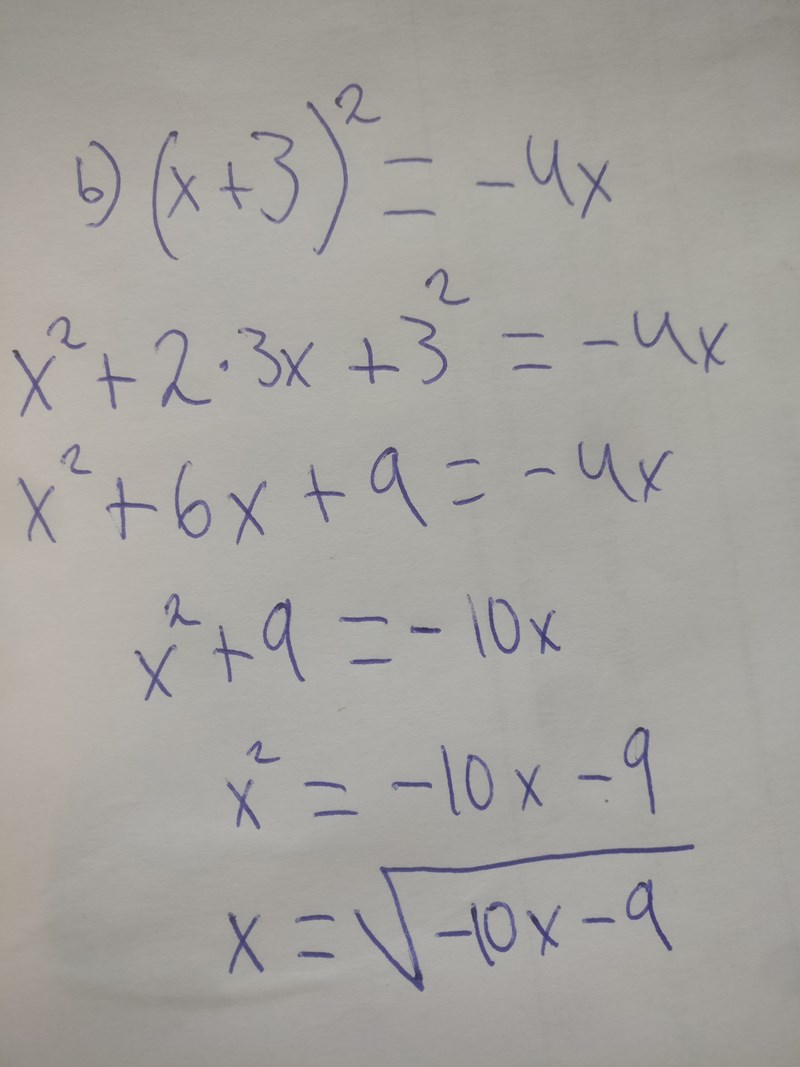 b) (x+3)² = -4x
x² + 2·3x + 3² = -4x
x² + 6x + 9 = -4x
x² + 9 = -10x
x² = -10x - 9
x = √(-10x - 9)